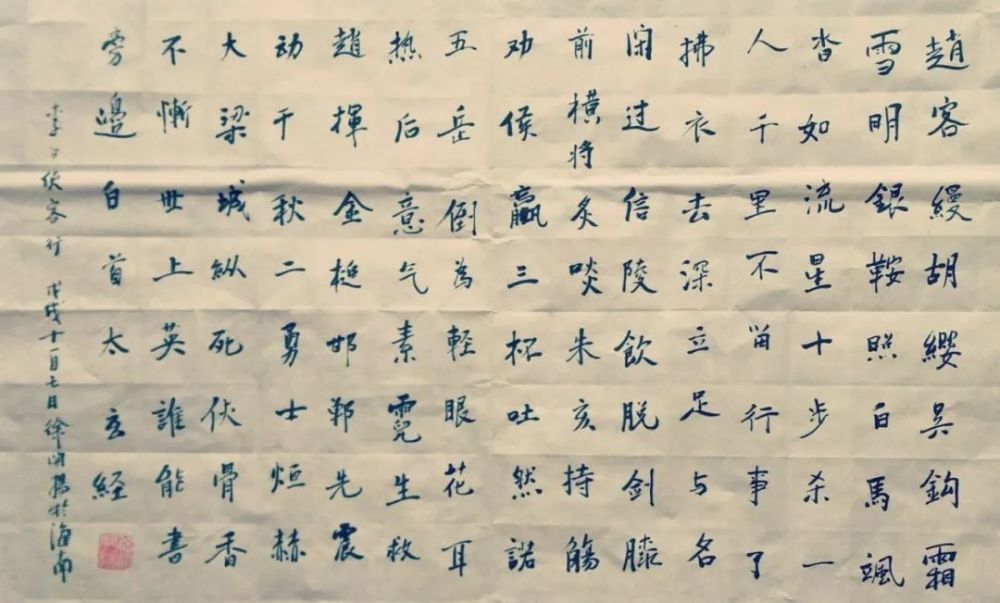 趙客縵胡纓吳鈎霜
雪明銀鞍照白馬颯
沓如流星十步杀一
人千里不畄行事了
拂衣去深立足与名
閑过信陵飲脱剑膝
前横将炙啖朱亥持觴
劝侯嬴三杯吐然諾
五岳倒為輕眼花耳
热后意气素霓生救
趙揮金槌邯鄲先震
动千秋二勇士烜赫
大梁城縱死侠骨香
不慚世上英誰能書
旁邊白首太玄経
李白侠客行 戊戌十一月七日徐揚於海南